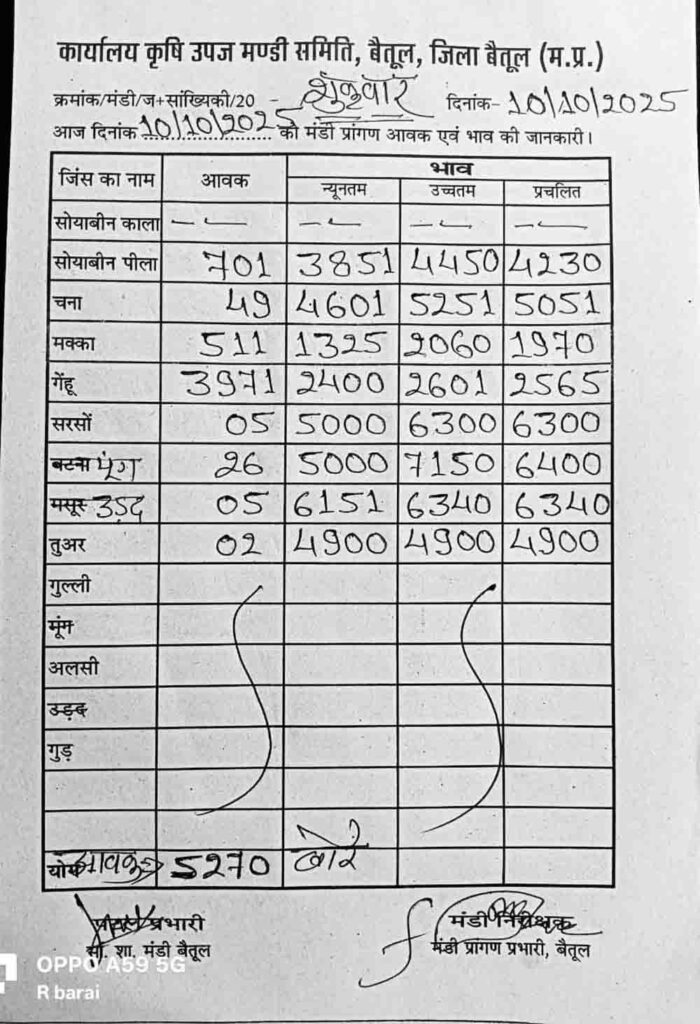 कार्यालय कृषि उपज मण्डी समिति, बैतूल, जिला बैतूल (म.प्र.)
क्रमांक/मंडी/ज+सांख्यिकी/20 - शुक्रवार दिनांक- 10/10/2025
आज दिनांक 10/10/2025 की मंडी प्रांगण आवक एवं भाव की जानकारी।
जिंस का नाम आवक भाव
न्यूनतम उच्चतम प्रचलित
सोयाबीन काला -- -- -- --
सोयाबीन पीला 701 3851 4450 4230
चना 49 4601 5251 5051
मक्का 511 1325 2060 1970
गेंहू 3971 2400 2601 2565
सरसों 05 5000 6300 6300
बटना मूंग 26 5000 7150 6400
मसूर उड़द 05 6151 6340 6340
तुअर 02 4900 4900 4900
गुल्ली
मूंग
अलसी
उड़द
गुड़
योग आवक 5270 बोरे
प्रभारी मंडी निरीक्षक
सां. शा. मंडी बैतूल मंडी प्रांगण प्रभारी, बैतूल
OPPO A59 5G
R barai